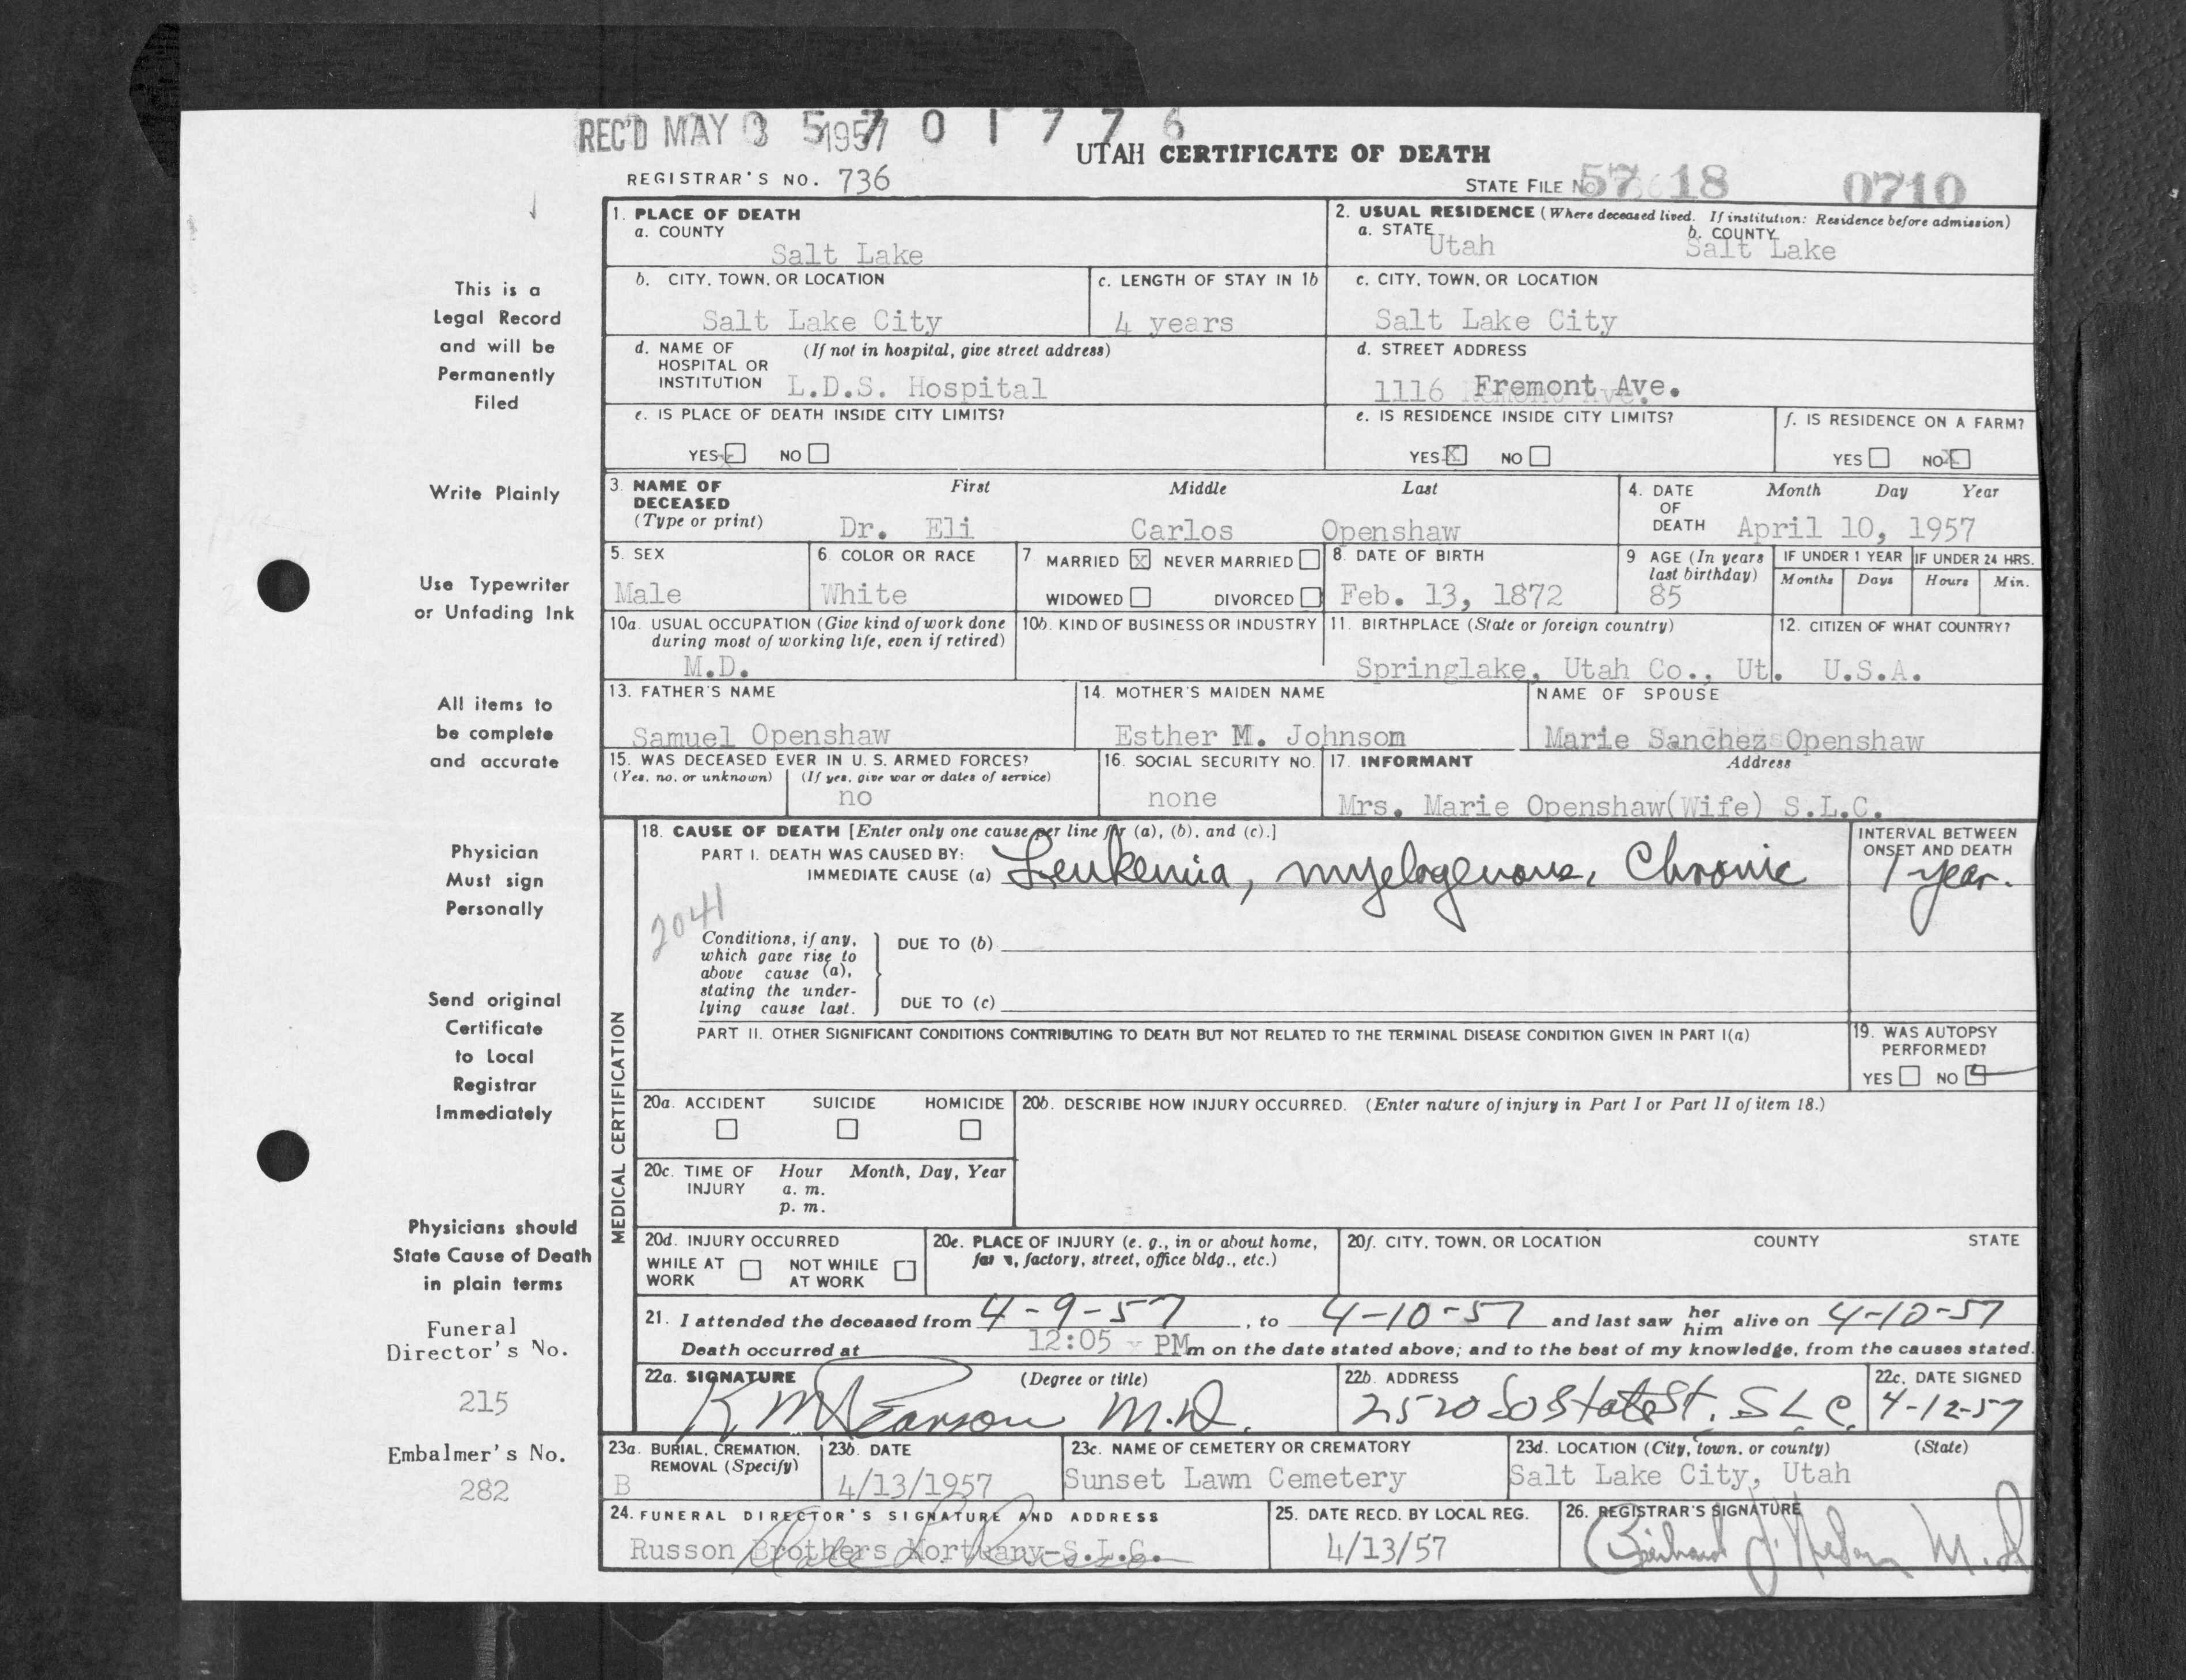 REC'D MAY 3 1957
5 7 0 1 7 7 6
UTAH CERTIFICATE OF DEATH
REGISTRAR'S NO. 736
STATE FILE NO. 57 18 0710
This is a
Legal Record
and will be
Permanently
Filed
Write Plainly
Use Typewriter
or Unfading Ink
All items to
be complete
and accurate
Physician
Must sign
Personally
Send original
Certificate
to Local
Registrar
Immediately
Physicians should
State Cause of Death
in plain terms
Funeral
Director's No.
215
Embalmer's No.
282
1. PLACE OF DEATH
a. COUNTY
Salt Lake
2. USUAL RESIDENCE (Where deceased lived. If institution: Residence before admission)
a. STATE Utah b. COUNTY Salt Lake
b. CITY, TOWN, OR LOCATION
Salt Lake City
c. LENGTH OF STAY IN 1b
4 years
c. CITY, TOWN, OR LOCATION
Salt Lake City
d. NAME OF (If not in hospital, give street address)
HOSPITAL OR
INSTITUTION L.D.S. Hospital
d. STREET ADDRESS
1116 Fremont Ave.
e. IS PLACE OF DEATH INSIDE CITY LIMITS?
YES X NO
e. IS RESIDENCE INSIDE CITY LIMITS?
YES X NO
f. IS RESIDENCE ON A FARM?
YES NO X
3. NAME OF First Middle Last
DECEASED
(Type or print) Dr. Eli Carlos Openshaw
4. DATE Month Day Year
OF
DEATH April 10, 1957
5. SEX
Male
6. COLOR OR RACE
White
7 MARRIED X NEVER MARRIED
WIDOWED DIVORCED
8. DATE OF BIRTH
Feb. 13, 1872
9 AGE (In years
last birthday)
85
IF UNDER 1 YEAR
Months Days
IF UNDER 24 HRS.
Hours Min.
10a. USUAL OCCUPATION (Give kind of work done
during most of working life, even if retired)
M.D.
10b. KIND OF BUSINESS OR INDUSTRY
11. BIRTHPLACE (State or foreign country)
Springlake, Utah Co., Ut.
12. CITIZEN OF WHAT COUNTRY?
U.S.A.
13. FATHER'S NAME
Samuel Openshaw
14. MOTHER'S MAIDEN NAME
Esther M. Johnson
NAME OF SPOUSE
Marie Sanchez Openshaw
15. WAS DECEASED EVER IN U. S. ARMED FORCES?
(Yes, no, or unknown) (If yes, give war or dates of service)
no
16. SOCIAL SECURITY NO.
none
17. INFORMANT Address
Mrs. Marie Openshaw(Wife) S.L.C.
MEDICAL CERTIFICATION
18. CAUSE OF DEATH [Enter only one cause per line for (a), (b), and (c).]
PART I. DEATH WAS CAUSED BY:
IMMEDIATE CAUSE (a) Leukemia, myelogenous, Chronic
INTERVAL BETWEEN
ONSET AND DEATH
1 year.
2041
Conditions, if any,
which gave rise to
above cause (a),
stating the under-
lying cause last.
DUE TO (b)
DUE TO (c)
PART II. OTHER SIGNIFICANT CONDITIONS CONTRIBUTING TO DEATH BUT NOT RELATED TO THE TERMINAL DISEASE CONDITION GIVEN IN PART I(a)
19. WAS AUTOPSY
PERFORMED?
YES NO
20a. ACCIDENT SUICIDE HOMICIDE
20b. DESCRIBE HOW INJURY OCCURRED. (Enter nature of injury in Part I or Part II of item 18.)
20c. TIME OF Hour Month, Day, Year
INJURY a. m.
p. m.
20d. INJURY OCCURRED
WHILE AT NOT WHILE
WORK AT WORK
20e. PLACE OF INJURY (e. g., in or about home,
farm, factory, street, office bldg., etc.)
20f. CITY, TOWN, OR LOCATION COUNTY STATE
21. I attended the deceased from 4-9-57, to 4-10-57 and last saw her him alive on 4-10-57
Death occurred at 12:05 PM m on the date stated above; and to the best of my knowledge, from the causes stated.
22a. SIGNATURE (Degree or title)
K M Pearson M.D.
22b. ADDRESS
2520 So State St. SLC.
22c. DATE SIGNED
4-12-57
23a. BURIAL, CREMATION,
REMOVAL (Specify)
B
23b. DATE
4/13/1957
23c. NAME OF CEMETERY OR CREMATORY
Sunset Lawn Cemetery
23d. LOCATION (City, town, or county) (State)
Salt Lake City, Utah
24. FUNERAL DIRECTOR'S SIGNATURE AND ADDRESS
Russon Brothers Mortuary-S.L.C.
25. DATE RECD. BY LOCAL REG.
4/13/57
26. REGISTRAR'S SIGNATURE
M.D.